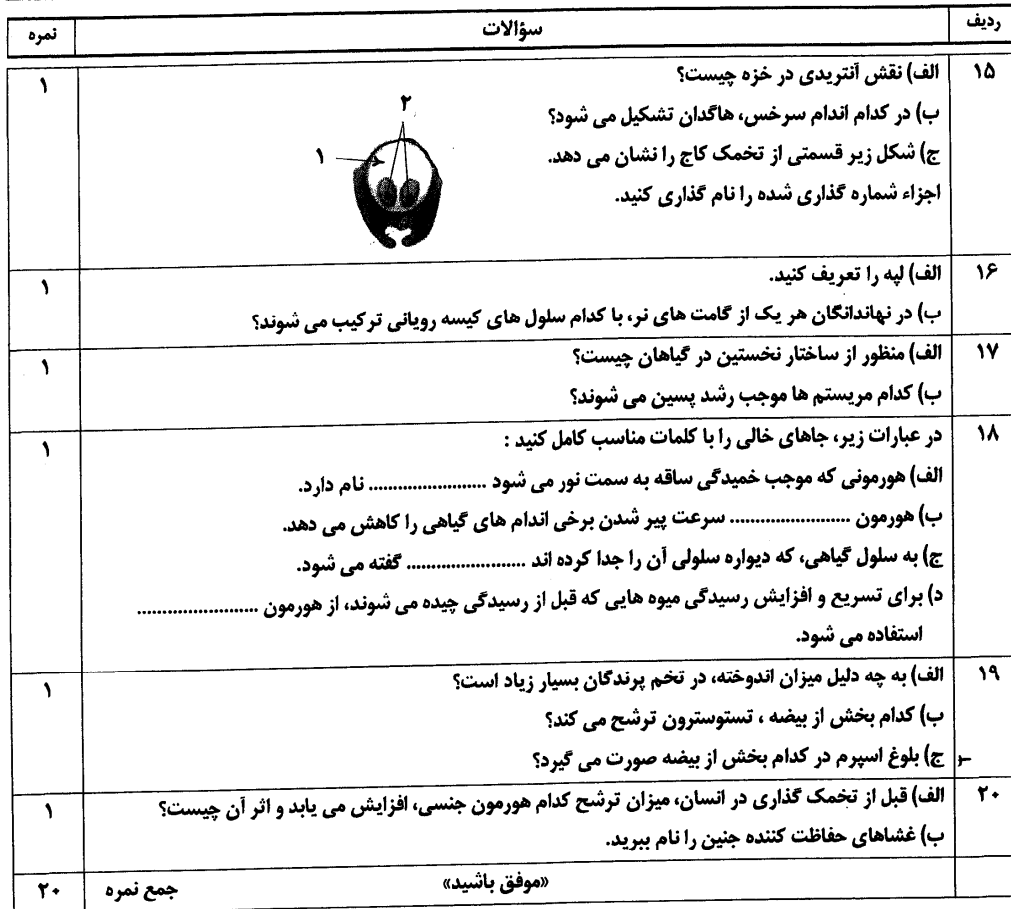 ردیف سؤالات نمره
۱۵ الف) نقش آنتریدی در خزه چیست؟ ۱
ب) در کدام اندام سرخس، هاگدان تشکیل می شود؟
ج) شکل زیر قسمتی از تخمک کاج را نشان می دهد.
اجزاء شماره گذاری شده را نام گذاری کنید.
۲
۱
۱۶ الف) لپه را تعریف کنید. ۱
ب) در نهاندانگان هر یک از گامت های نر، با کدام سلول های کیسه رویانی ترکیب می شوند؟
۱۷ الف) منظور از ساختار نخستین در گیاهان چیست؟ ۱
ب) کدام مریستم ها موجب رشد پسین می شوند؟
۱۸ در عبارات زیر، جاهای خالی را با کلمات مناسب کامل کنید : ۱
الف) هورمونی که موجب خمیدگی ساقه به سمت نور می شود ........................ نام دارد.
ب) هورمون ......................... سرعت پیر شدن برخی اندام های گیاهی را کاهش می دهد.
ج) به سلول گیاهی، که دیواره سلولی آن را جدا کرده اند ........................ گفته می شود.
د) برای تسریع و افزایش رسیدگی میوه هایی که قبل از رسیدگی چیده می شوند، از هورمون .........................
استفاده می شود.
۱۹ الف) به چه دلیل میزان اندوخته، در تخم پرندگان بسیار زیاد است؟ ۱
ب) کدام بخش از بیضه ، تستوسترون ترشح می کند؟
ج) بلوغ اسپرم در کدام بخش از بیضه صورت می گیرد؟
۲۰ الف) قبل از تخمک گذاری در انسان، میزان ترشح کدام هورمون جنسی، افزایش می یابد و اثر آن چیست؟ ۱
ب) غشاهای حفاظت کننده جنین را نام ببرید.
«موفق باشید» جمع نمره ۲۰